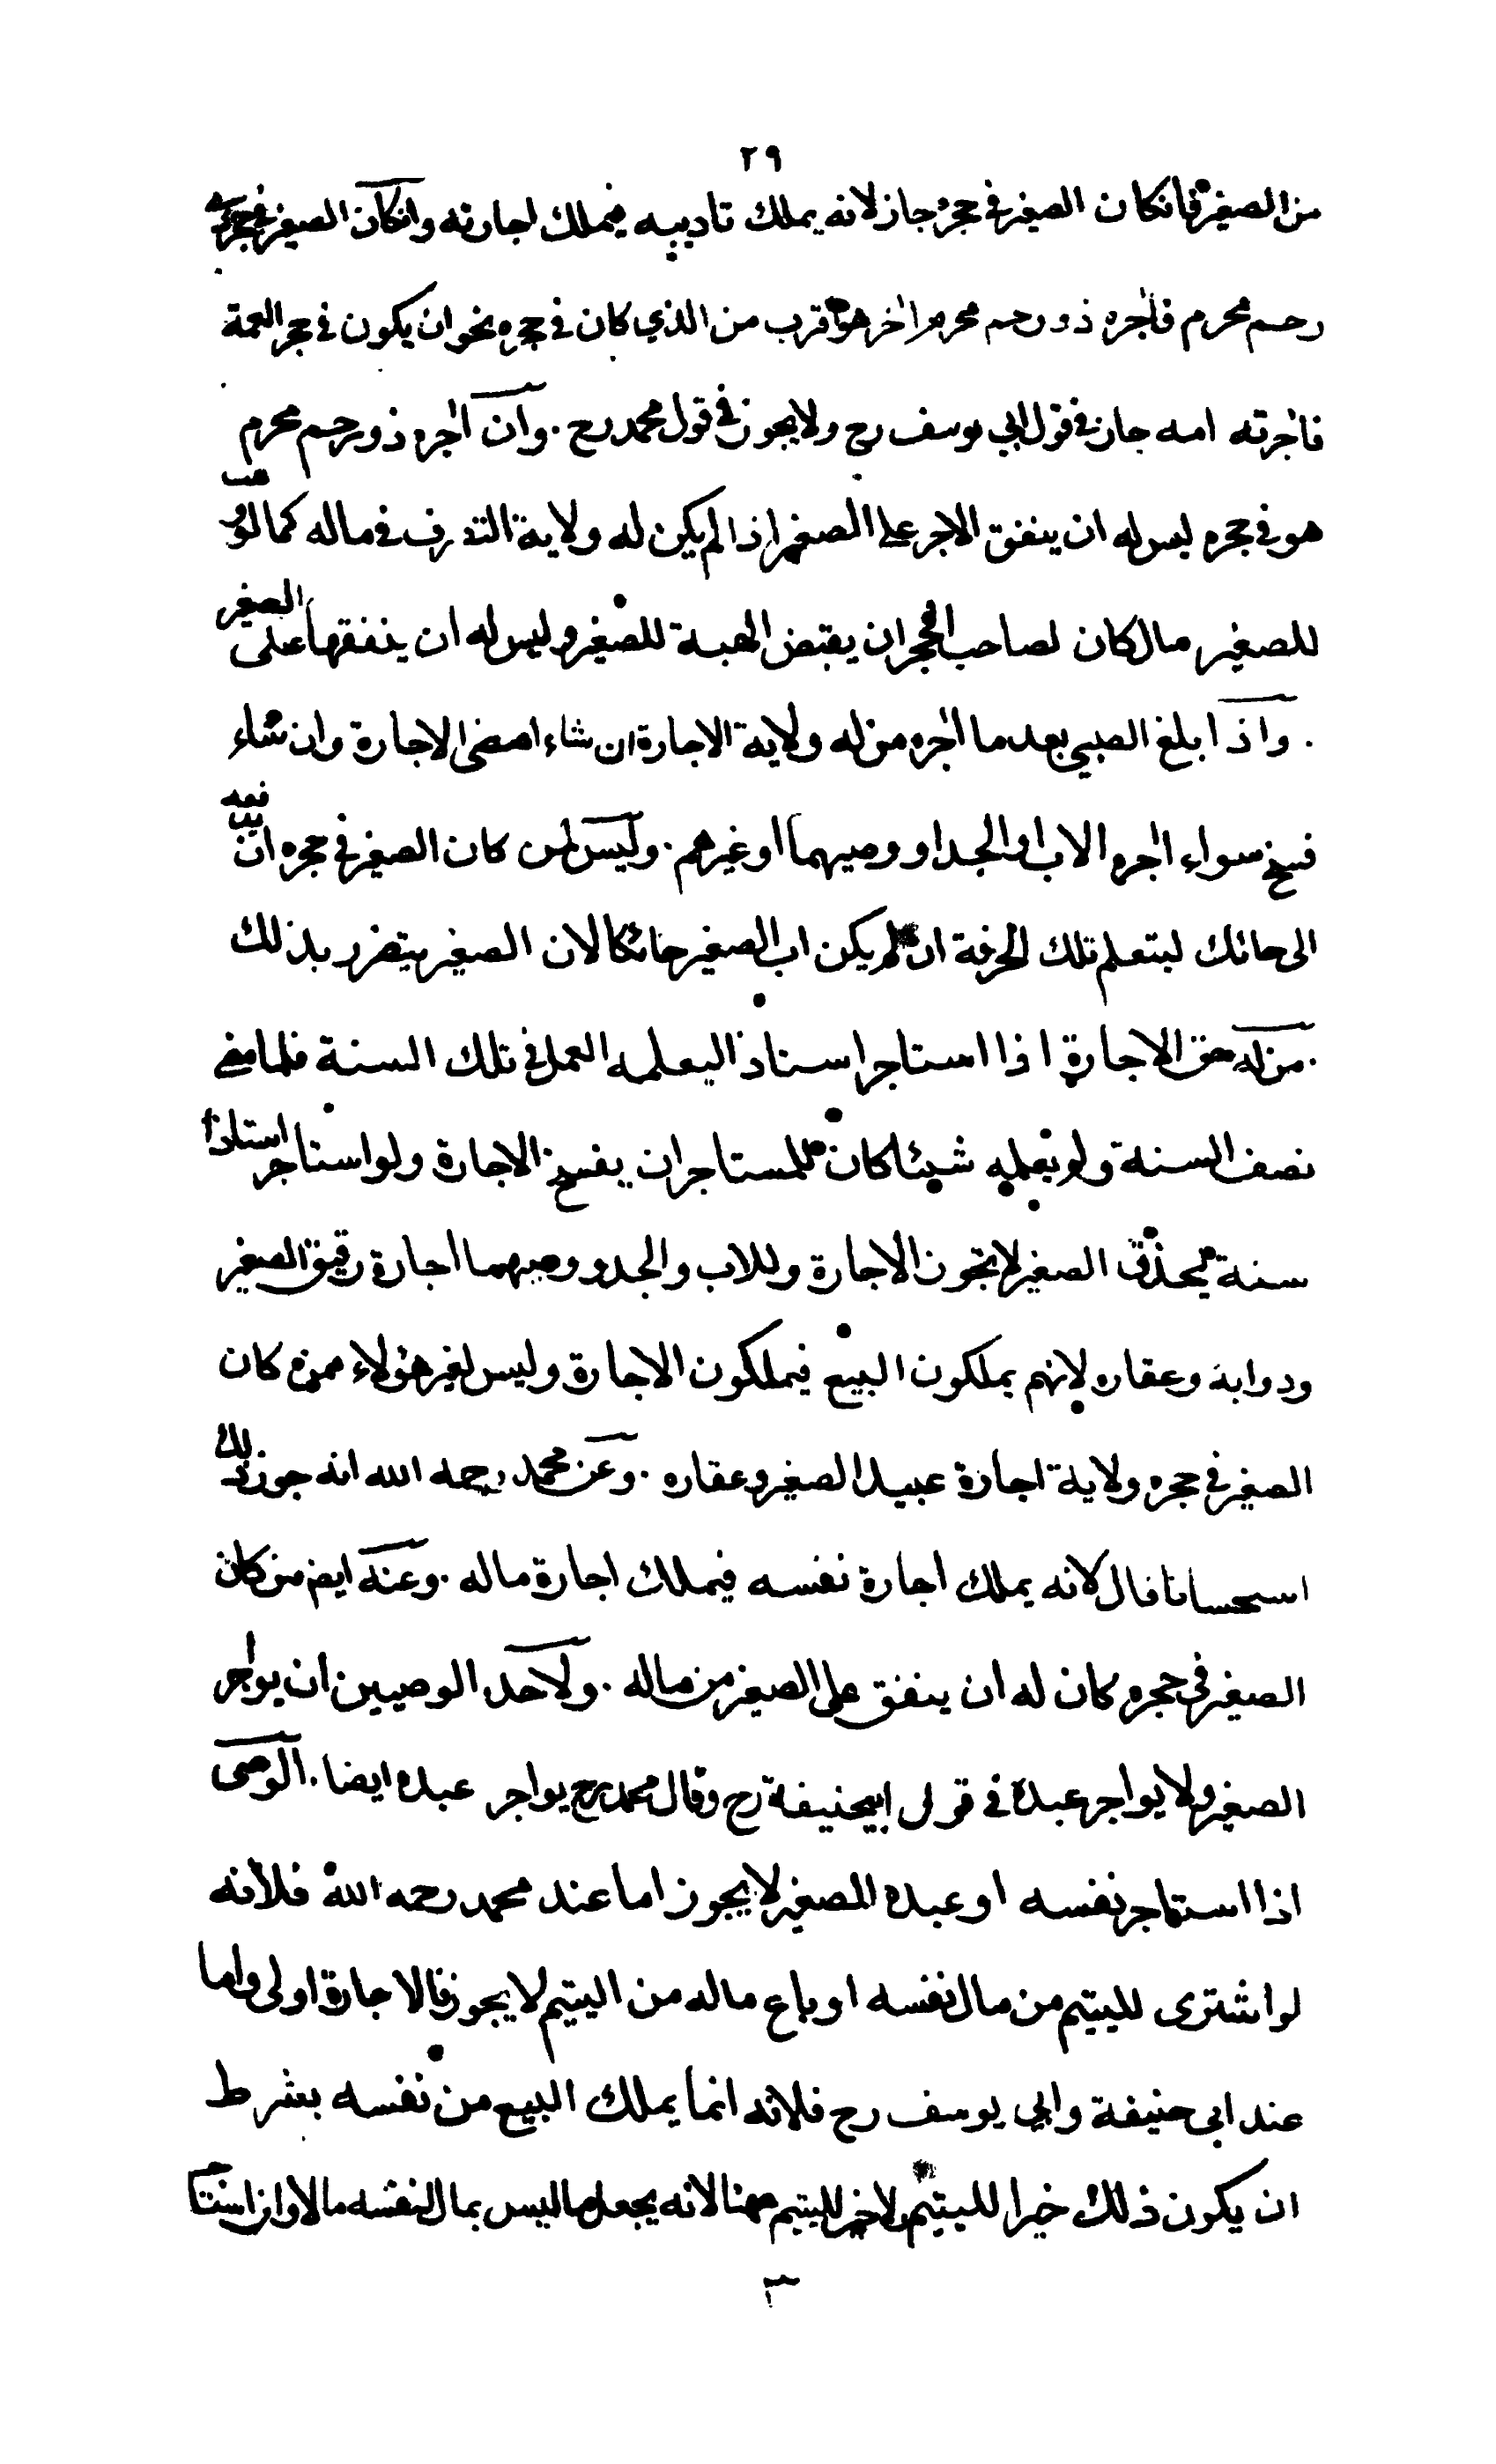 ٢٩
من الصغير فانكان الصغير في حجره جاز لانه يملك تاديبه فيملك اجارته وانكان الصغير في حجر ذي
رحم محرم فاجره ذو رحم محرم اخر هو اقرب من الذي كان في حجره نحو ان يكون في حجر العمة
فاجرته امه جاز في قول ابي يوسف رح ولا يجوز في قول محمد رح . وان اجره ذو رحم محرم
هو في حجره ليس له ان ينفق الاجر على الصغير اذا لم يكن له ولاية التصرف في ماله كما لو وهب
للصغير مال كان لصاحب الحجر ان يقبض الهبة للصغير وليس له ان ينفقها على الصغير
. واذا بلغ الصبي بعد ما اجره من له ولاية الاجارة ان شاء امضى الاجارة وان شاء
فسخ سواء اجره الاب او الجد او وصيهما او غيرهم . وليس لمن كان الصغير في حجره ان يدفعه
الى حائك ليتعلم تلك الحرفة ان لم يكن اب الصغير حائكا لان الصغير يتضرر بذلك
. من له حق الاجارة اذا استاجر استاذا ليعلمه العمل في تلك السنة فلما مضى
نصف السنة ولم يعلمه شيئا كان للمستاجر ان يفسخ الاجارة ولو استاجر استاذا
سنة ليحذق الصغير لا تجوز الاجارة وللاب والجد ووصيهما اجارة رقيق الصغير
ودوابه وعقاره لانهم يملكون البيع فيملكون الاجارة وليس لغير هؤلاء ممن كان
الصغير في حجره ولاية اجارة عبيد الصغير وعقاره . وعن محمد رحمه الله انه جوز ذلك
استحسانا قال لانه يملك اجارة نفسه فيملك اجارة ماله . وعنه ايضا من كان
الصغير في حجره كان له ان ينفق على الصغير من ماله . ولاحد الوصيين ان يواجر
الصغير ولا يواجر عبده في قول ابيحنيفة رح وقال محمد رح يواجر عبده ايضا . الوصى
اذا استاجر نفسه او عبده للصغير لا يجوز اما عند محمد رحمه الله فلأنه
لو اشترى لليتيم من مال نفسه او باع ماله من اليتيم لا يجوز فالاجارة اولى واما
عند ابى حنيفة وابي يوسف رح فلانه انما يملك البيع من نفسه بشرط
ان يكون ذلك خيرا لليتيم ولا خير لليتيم ههنا لانه يجعل ما ليس بمال لنفسه مالا وان استا